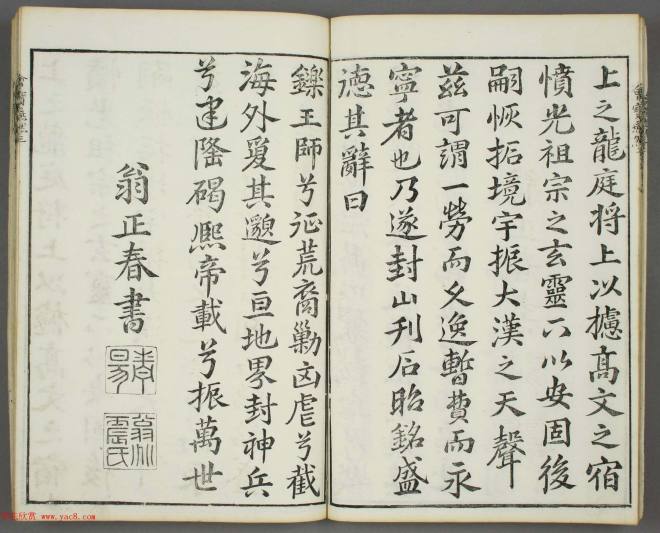 上之龍庭将上以攄髙文之宿
憤光祖宗之玄靈下以安固後
嗣恢拓境宇振大漢之天聲
茲可謂一勞而乆逸暫費而永
寧者也乃遂封山刋石昭銘盛
徳其辭曰
鑠王師兮征荒裔勦凶虐兮截
海外敻其邈兮亘地界封神兵
兮建隆碣熈帝載兮振萬世
翁正春書
www.yac8.com